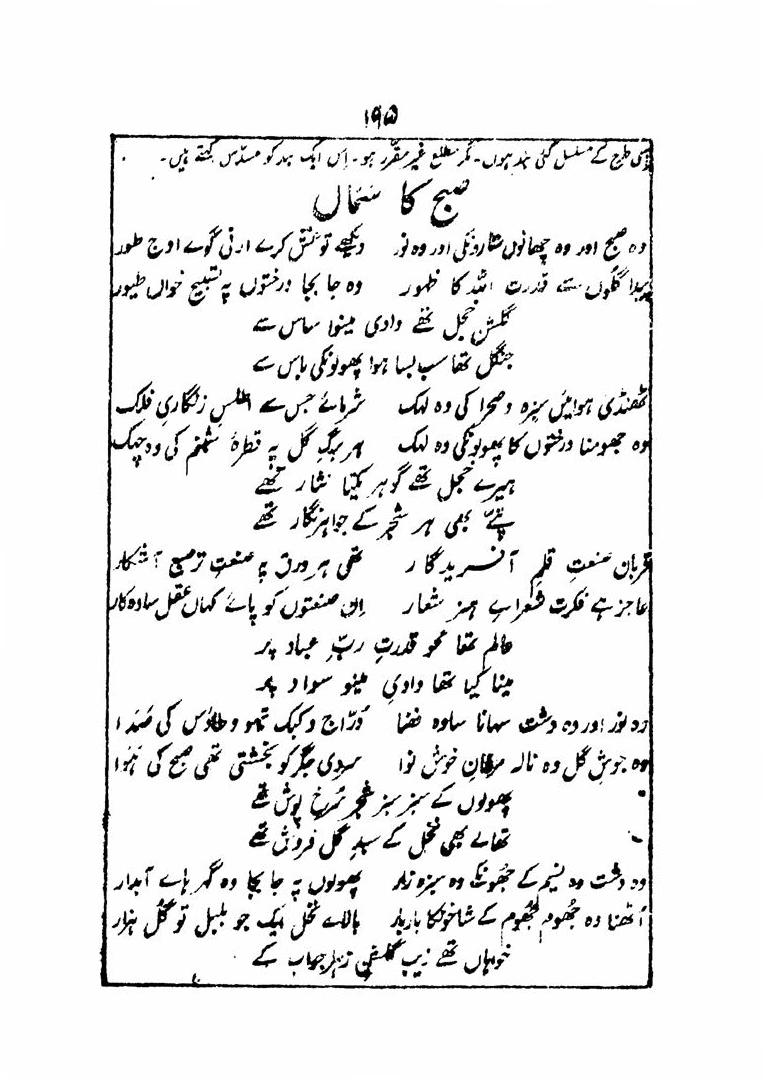 ۱۹۵
اسی طرح کے مسلسل کئی بند ہوں۔ مگر مطلع غیر مقرر ہو۔ اِس ایک بند کو مسدّس کہتے ہیں۔
صبح کا سماں
وہ صبح اور وہ چھانوں ستارونکی اور وہ نور دیکھے تو غش کرے ارنی گوے اوج طور
پیدا گلوں سے قدرت اللہ کا ظہور وہ جا بجا درختوں پہ تسبیح خواں طیور
گلشن خجل تھے وادی مینوا ساس سے
جنگل تھا سب بسا ہوا پھولونکی باس سے
ٹھنڈی ہوائیں سبزہ وصحرا کی وہ لہک شرمائے جس سے اطلسِ زنگاریِ فلک
وہ جھومنا درختوں کا پھولونکی وہ لہک ہر برگِ گل پہ قطرۂ شبنم کی وہ چمک
ہیرے خجل تھے گوہر یکتا نثار تھے
پتّے بھی ہر شجر کے جواہر نگار تھے
قربان صنعتِ قلمِ آفریدگار تھی ہر ورق پہ صنعتِ ترصیع آشکار
عاجز ہے فکرت شعراے ہنر شعار ان صنعتوں کو پائے کہاں عقل سادہ کار
عالم تھا محو قدرتِ ربِّ عباد پر
مینا کیا تھا وادیِ مینو سواد پر
وہ نور اور وہ دشت سہانا سا وہ فضا دُرّاج و کبک تیہو و طاؤس کی صدا
وہ جوشِ گل وہ نالہ مرغانِ خوش نوا سردی جگر کو بخشتی تھی صبح کی ہوا
پھولوں کے سبز سبز شجر سُرخ پوش تھے
تھالے بھی نخل کے سبدِ گل فروش تھے
وہ دشت وہ نسیم کے جھونکے وہ سبزہ زار پھولوں پہ جا بجا وہ گہر ہاے آبدار
اُٹھنا وہ جُھوم جُھوم کے شاخونکا بار بار بالاے نخل ایک جو بلبل تو گُل ہزار
خواہاں تھے زیب گلشنِ زہرا جو آب کے